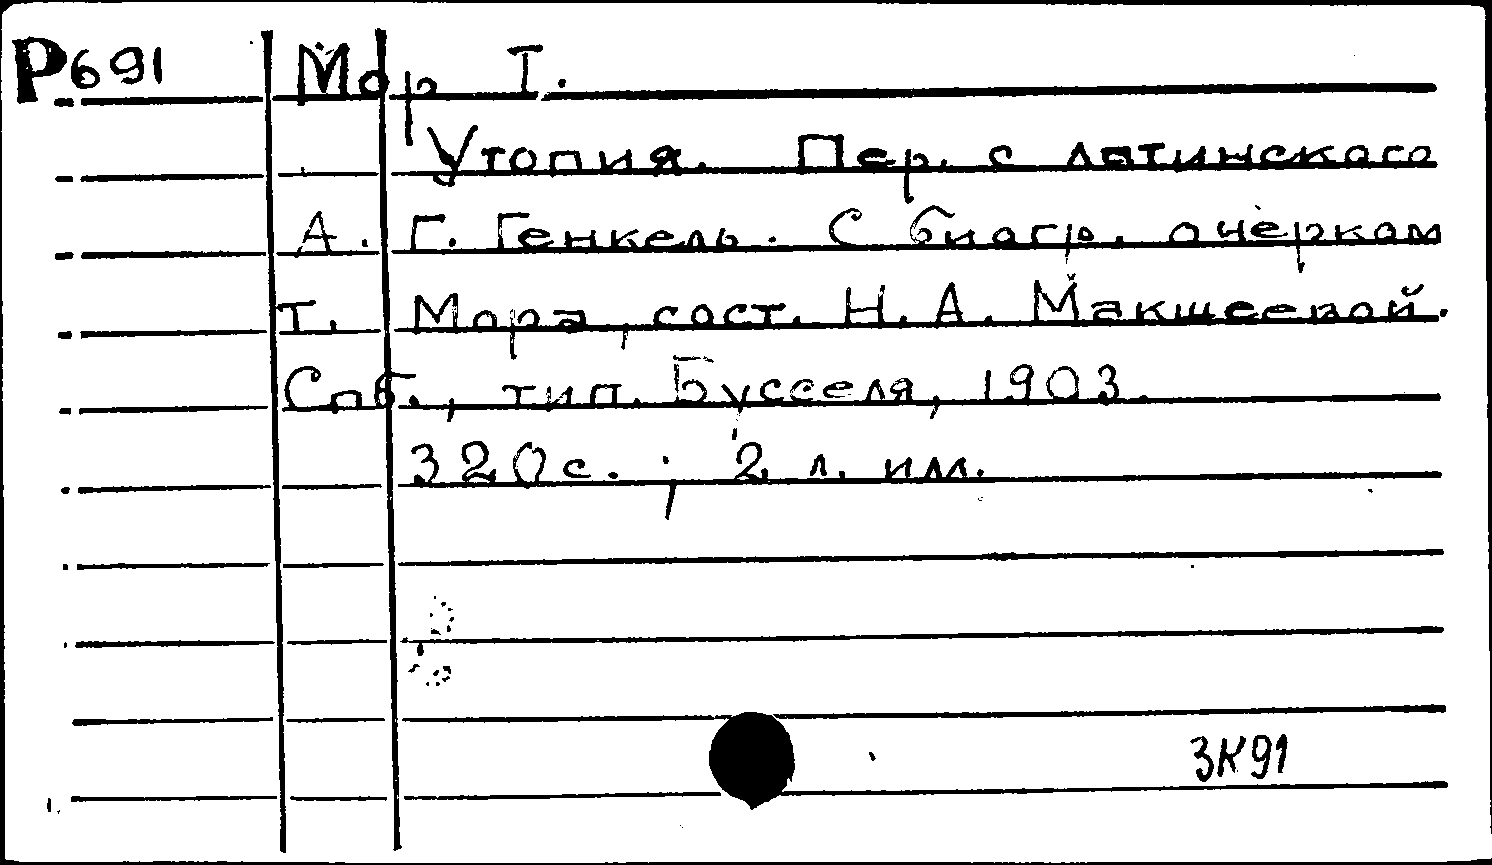 Р691 Мор Т.
Утопия. Пер. с латинского
А. Г. Генкель. С биогр. очерком
Т. Мора, сост. Н. А. Макшеевой.
Спб., тип. Бусселя, 1903.
320с. ; 2 л. илл.
3К91